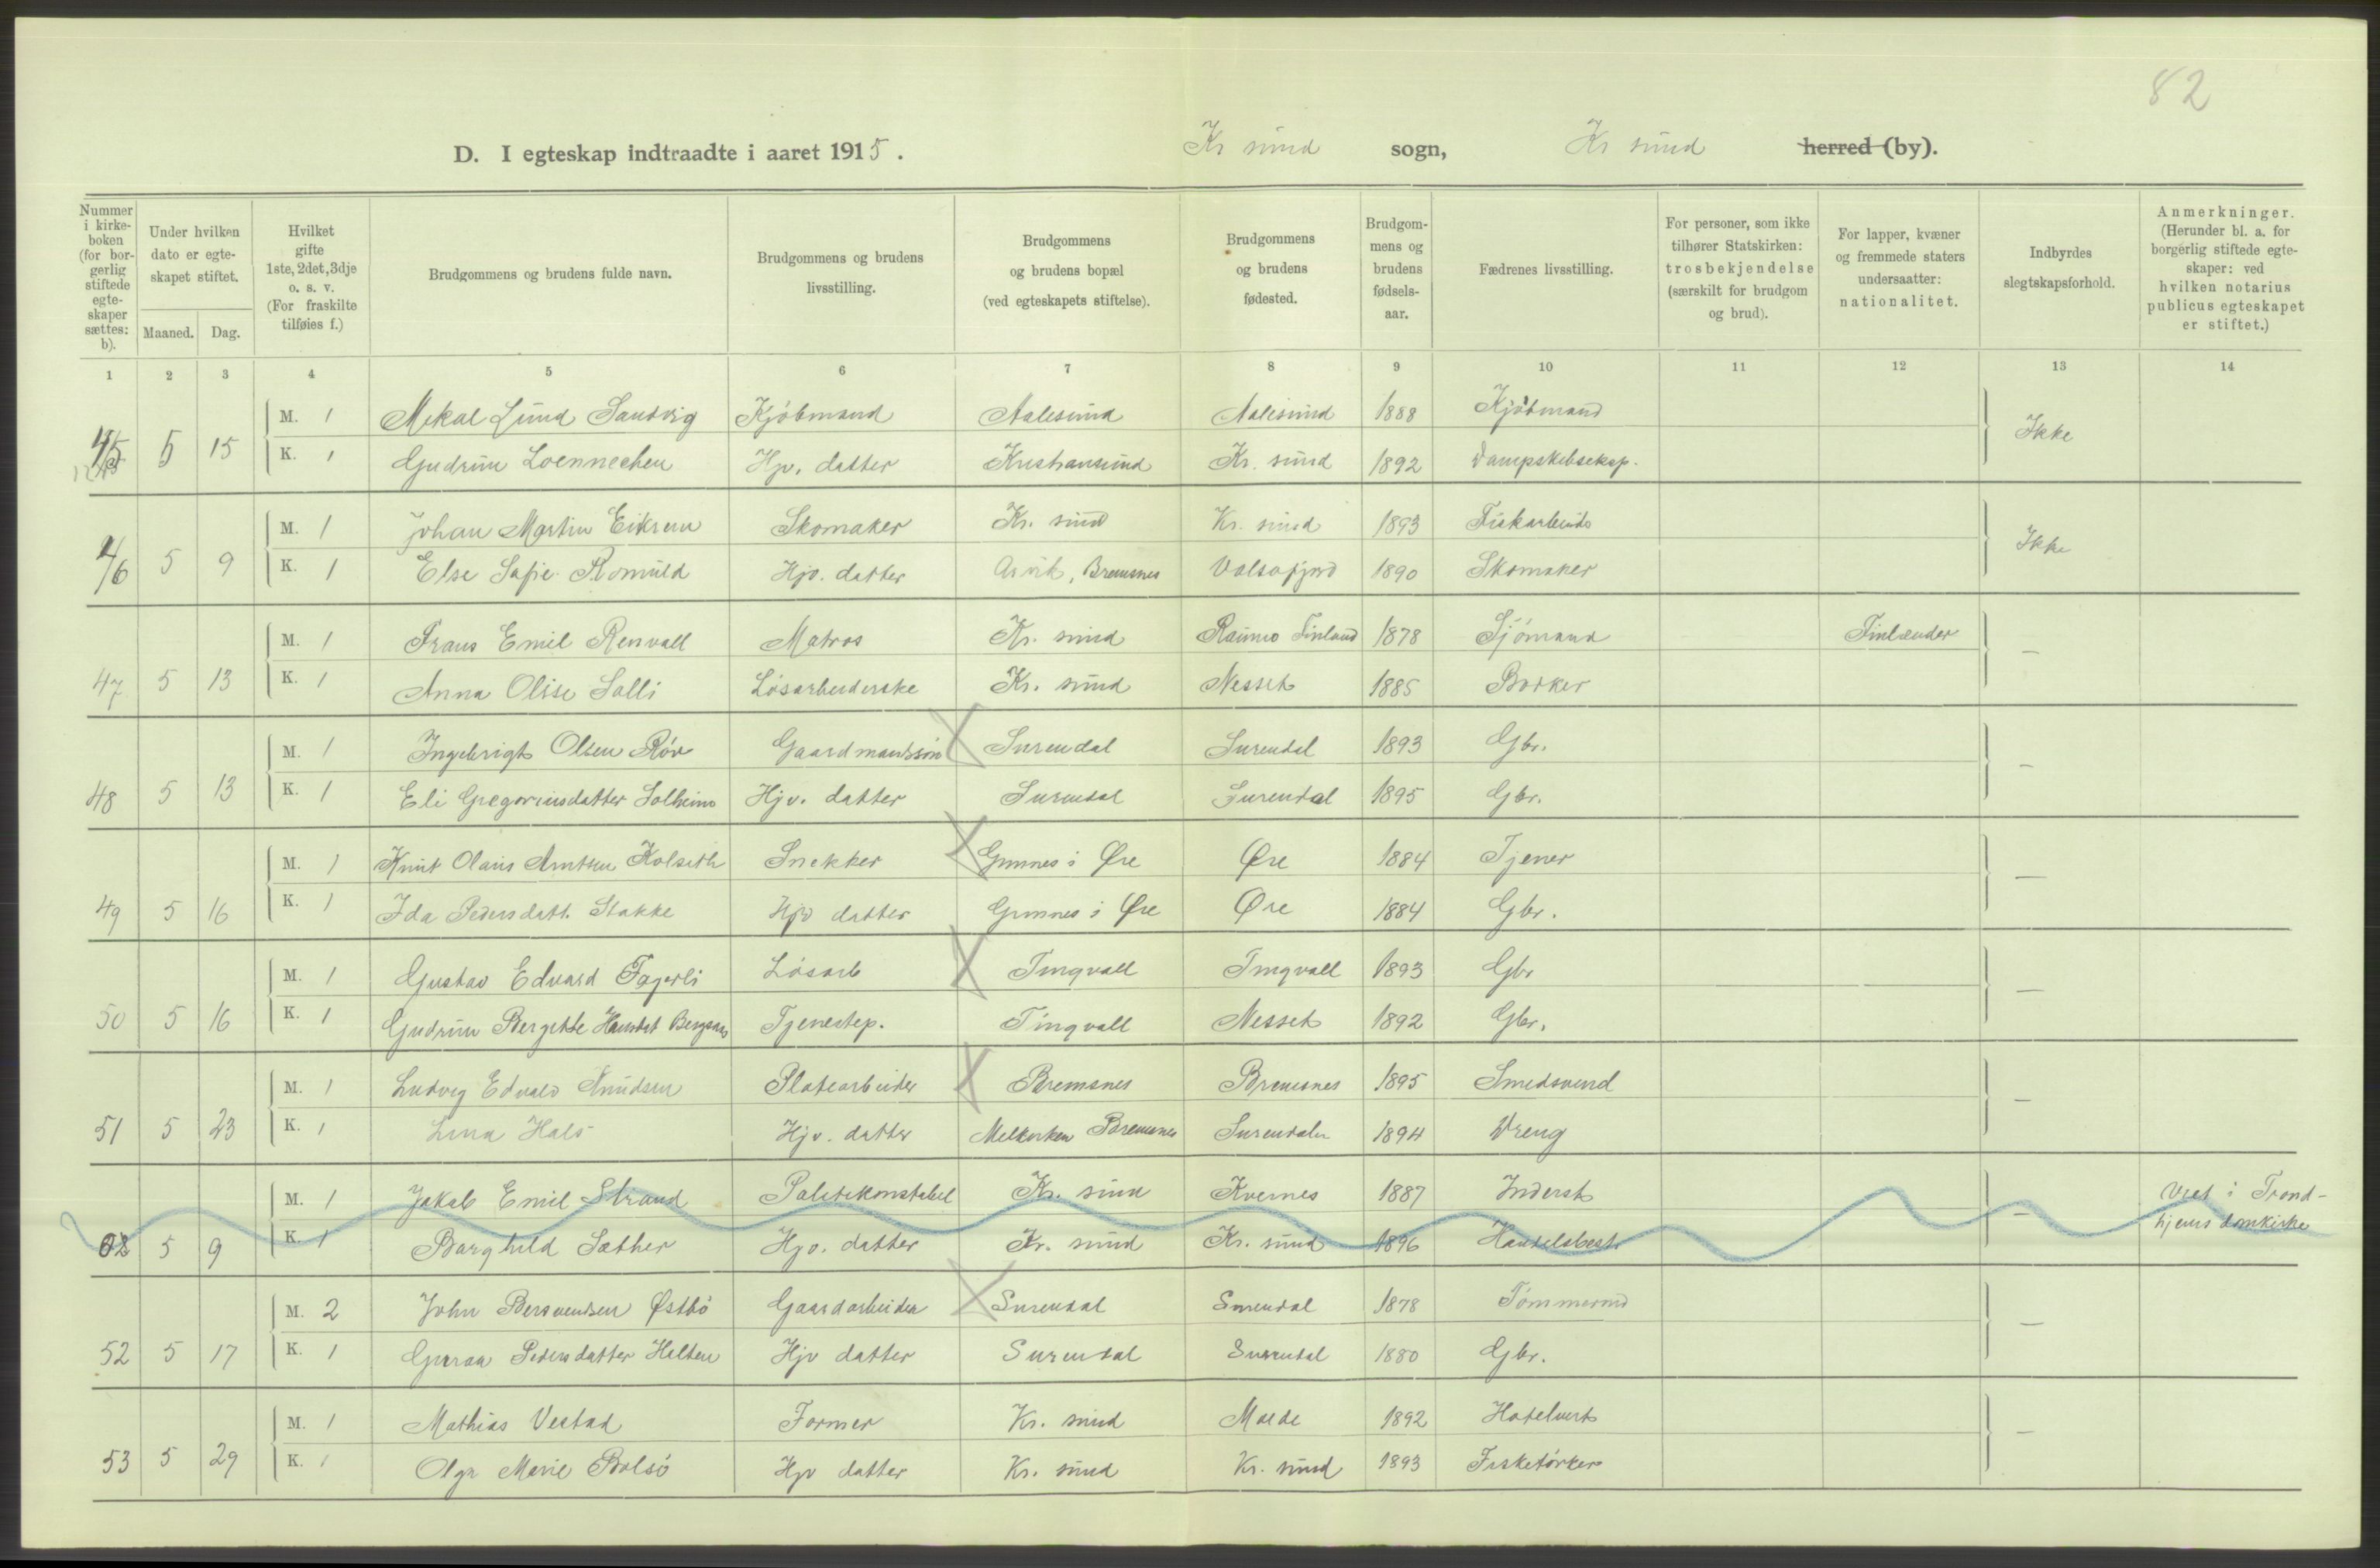 82
D. I egteskap indtraadte i aaret 1915. Kr sund sogn, Kr sund herred (by).
Nummer i kirkeboken (for borgerlig stiftede egteskaper sættes: b).
Under hvilken dato er egteskapet stiftet.
Maaned. Dag.
Hvilket gifte 1ste, 2det, 3dje o. s. v. (For fraskilte tilføies f.)
Brudgommens og brudens fulde navn.
Brudgommens og brudens livsstilling.
Brudgommens og brudens bopæl (ved egteskapets stiftelse).
Brudgommens og brudens fødested.
Brudgommens og brudens fødselsaar.
Fædrenes livsstilling.
For personer, som ikke tilhører Statskirken: trosbekjendelse (særskilt for brudgom og brud).
For lapper, kvæner og fremmede staters undersaatter: nationalitet.
Indbyrdes slegtskapsforhold.
Anmerkninger. (Herunder bl. a. for borgerlig stiftede egteskaper: ved hvilken notarius publicus egteskapet er stiftet.)
1 2 3 4 5 6 7 8 9 10 11 12 13 14
M. 1 Mikal Lund Sandvig Kjöbmand Aalesund Aalesund 1888 Kjöbmand
45 5 15 K. 1 Gudrun Loennechen Hjv. datter Kristiansund Kr. sund 1892 Dampskibseksp. Ikke
M. 1 Johan Martin Eikrem Skomaker Kr. sund Kr. sund 1893 Fiskarbeider
46 5 9 K. 1 Else Sofie Romuld Hjv. datter Asvik, Bremsnes Valsøfjord 1890 Skomaker Ikke
M. 1 Frans Emil Renvall Matros Kr. sund Raumo Finland 1878 Sjömand Finlænder
47 5 13 K. 1 Anna Olise Solli Lösarbeiderske Kr. sund Nesset 1885 Barker —
M. 1 Ingebrigt Olsen Röv Gaardmandssön Surendal Surendal 1893 Gbr.
48 5 13 K. 1 Eli Gregoriusdatter Solheim Hjv. datter Surendal Surendal 1895 Gbr. —
M. 1 Knut Olaus Arntsen Kolseth Snekker Gimnes i Øre Øre 1884 Tjener
49 5 16 K. 1 Ida Pedersdatt. Stakke Hjv datter Gimnes i Øre Øre 1884 Gbr. —
M. 1 Gustav Edvard Fagerli Lösarb Tingvoll Tingvoll 1893 Gbr
50 5 16 K. 1 Gudrun Bergitte Hanstet Tjenestep. Tingvoll Nesset 1892 Gbr. —
M. 1 Ludvig Edvald Knudsen Platearbeider Bremsnes Bremsnes 1895 Smedsvend
51 5 23 K. 1 Lina Hals Hjv. datter Bremsnes Surendalen 1894 Dreng —
M. 1 Jakob Emil Strand Politikonstabel Kr. sund Kvernes 1887 Inderst Viet i Trond-
5 9 K. 1 Borghild Sæther Hjv. datter Kr. sund Kr. sund 1896 Handelsbest. — hjems domkirke
M. 2 John Bersvendsen Østbö Gaardarbeider Surendal Surendal 1878 Tömmermd
52 5 17 K. 1 Guroa Pedersdatter Halten Hjv datter Surendal Surendal 1880 Gbr. —
M. 1 Mathias Vestad Former Kr. sund Molde 1892 Hotelvert
53 5 29 K. 1 Olga Marie Bolsö Hjv datter Kr. sund Kr. sund 1893 Fisketörker —